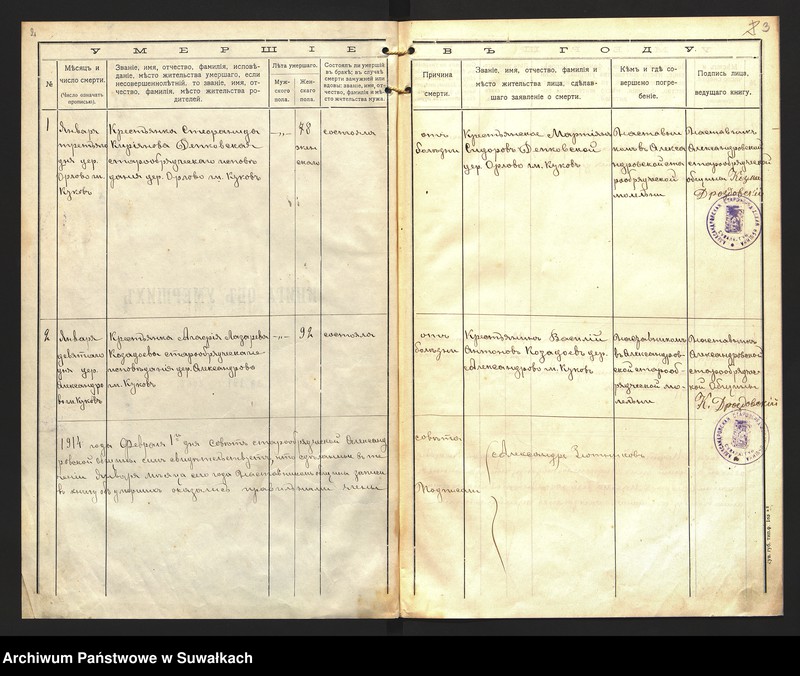 3
УМЕРШІЕ ВЪ ГОДУ.
№
Мѣсяцъ и
число смерти.
(Число означать
прописью).
Званіе, имя, отчество, фамилія, исповѣ-
даніе, мѣсто жительства умершаго, если
несовершеннолѣтній, то званіе, имя, от-
чество, фамилія, мѣсто жительства ро-
дителей.
Лѣта умершаго.
Муж-
ского
пола.
Жен-
скаго
пола.
Состоялъ ли умершій
въ бракѣ; въ случаѣ
смерти замужней или
вдовы: званіе, имя, от-
чество, фамилія и мѣ-
сто жительства мужа.
Причина
смерти.
Званіе, имя, отчество, фамилія и
мѣсто жительства лица, сдѣлав-
шаго заявленіе о смерти.
Кѣмъ и гдѣ со-
вершено погре-
беніе.
Подпись лица,
ведущаго книгу.
1
Января
третьяго
дня дер.
Орлово гм.
Куковъ
Крестьянка
Кирѣянова
старообрядческаго исповѣ
данія дер. Орлово гм. Куковъ
-„-
78
состояла
отъ
болѣзни
Сидоровъ
дер Орлово гм. Куковъ
Наставни
комъ въ Алекса
ндровской ста
рообрядческой
молельни
Наставникъ
Александровской
старообрядческой
общины
Дроздовскій
2
Января
девятаго
дня дер.
Александро
во гм. Куковъ
Крестьянка Агафія Лазарева
Козадаева старообрядческаго
исповѣданія дер. Александрово
гм. Куковъ
-„-
92
состояла
отъ
болѣзни
Крестьянинъ Василій
Антоновъ Козадаевъ дер.
Александрово гм. Куковъ
Наставникомъ
въ Александров-
ской старооб-
рядческой мо-
лельни
Наставникъ
Александровской
старообрядче-
кой Общины
К. Дроздовскій
1914 года Февраля 1го дня Совѣтъ старообрядческой Александ
ровской общины симъ свидѣтельствуетъ, что сдѣланныя въ те
ченіи Января мѣсяца сего года Наставникомъ общины записи
въ книгу объ умершихъ оказались правильными
совѣта
Александръ
Подписали
Archiwum Państwowe w Suwałkach